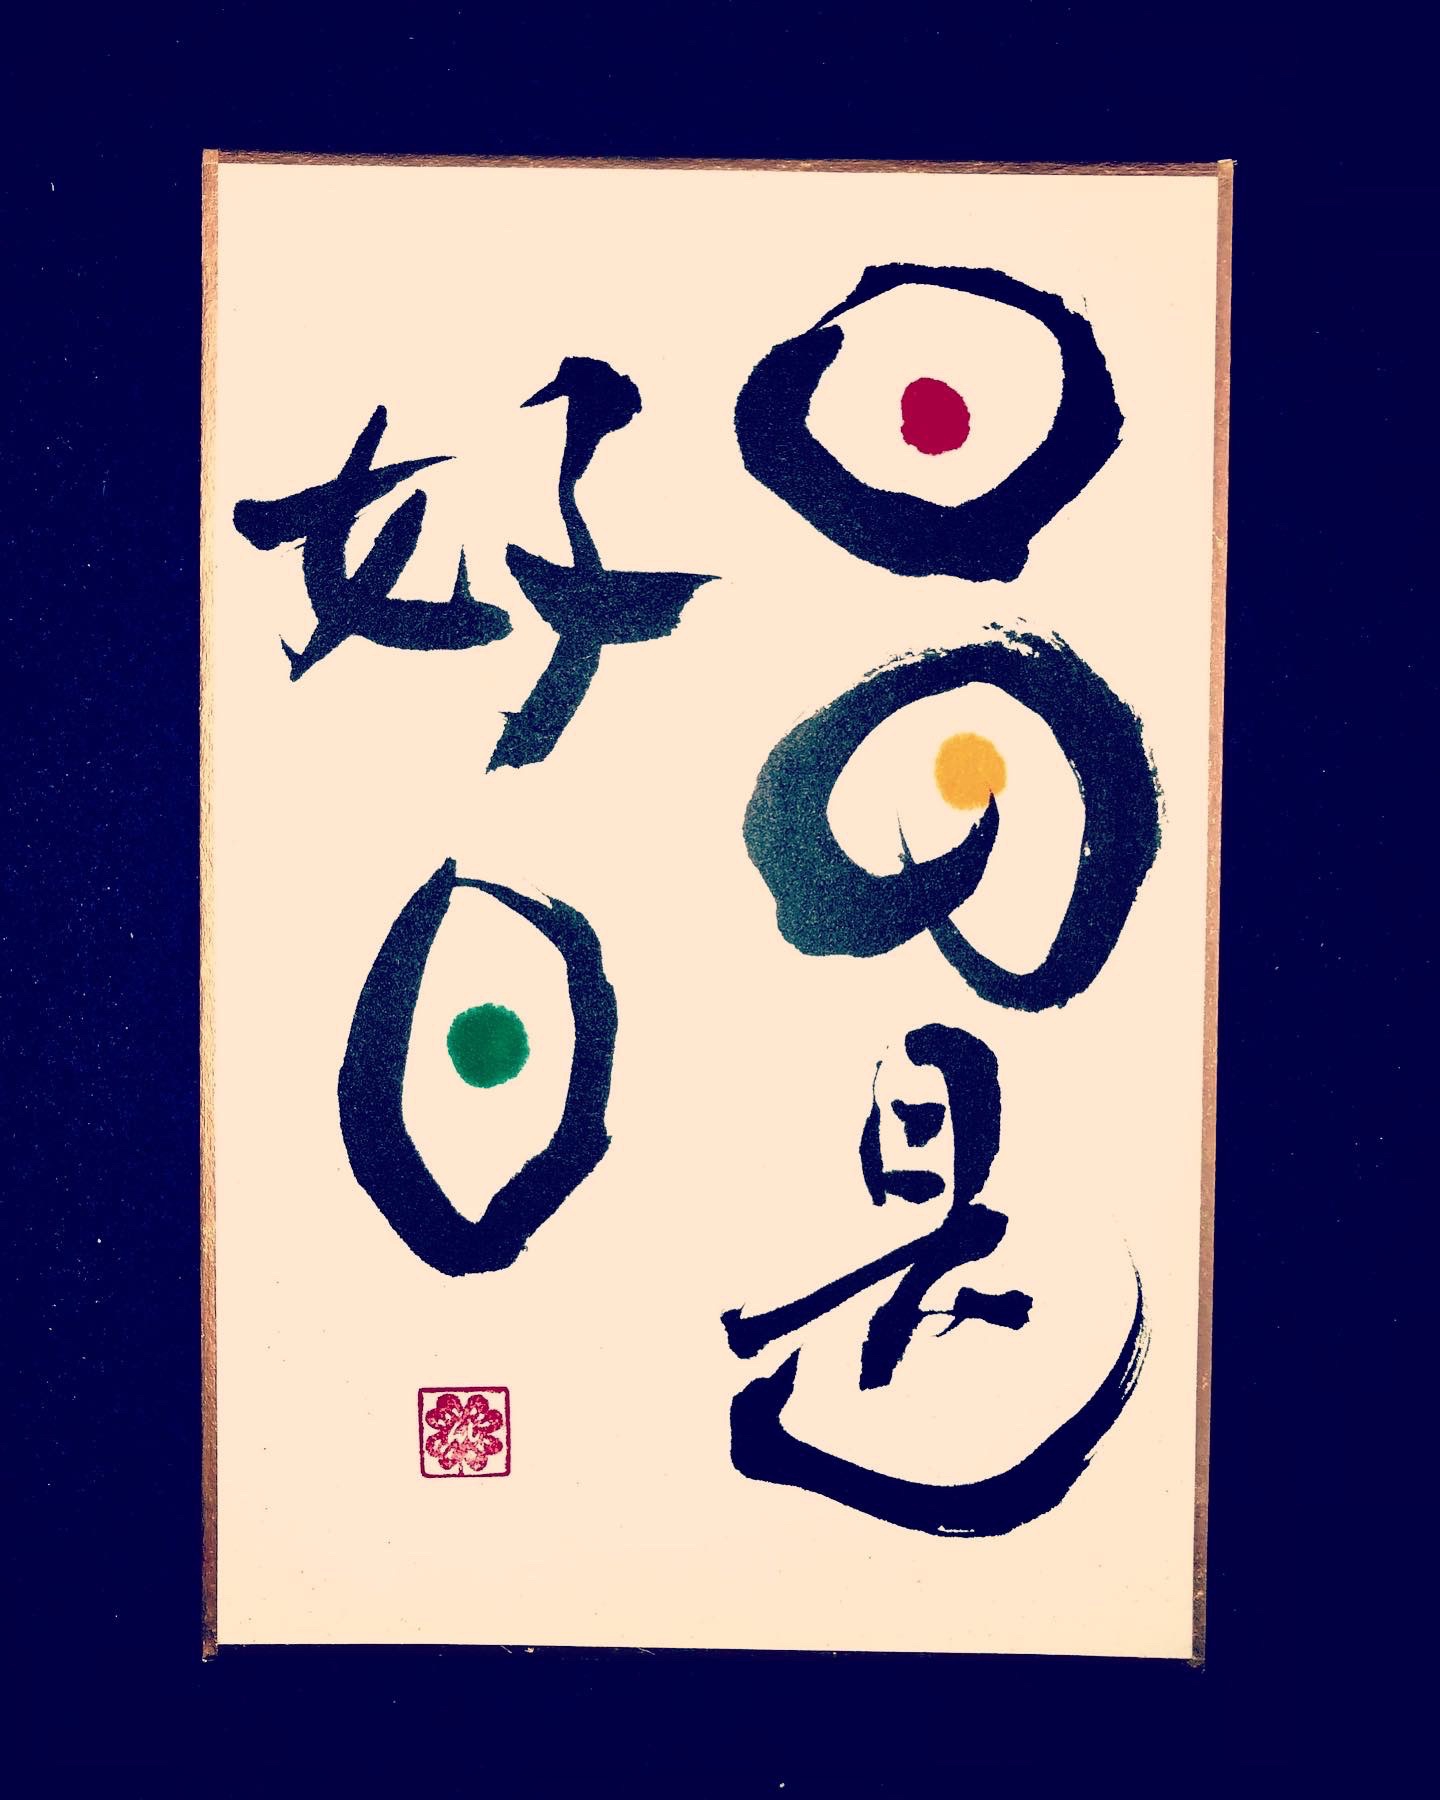 日日是
好日